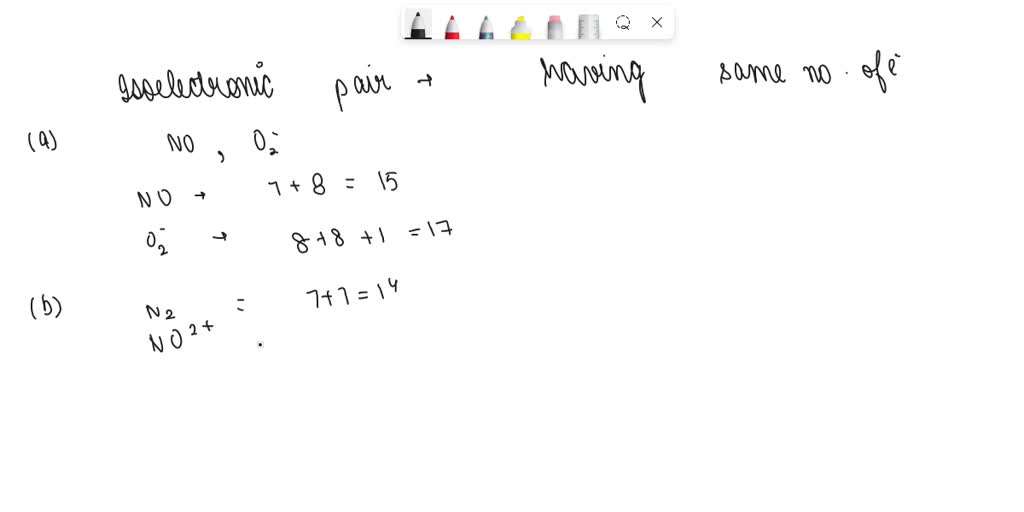 isoelectronic pair → having same no. of e⁻
(a) NO , O₂⁻
NO → 7 + 8 = 15
O₂⁻ → 8+8 +1 = 17
(b) N₂ = 7+7 = 14
NO²⁺